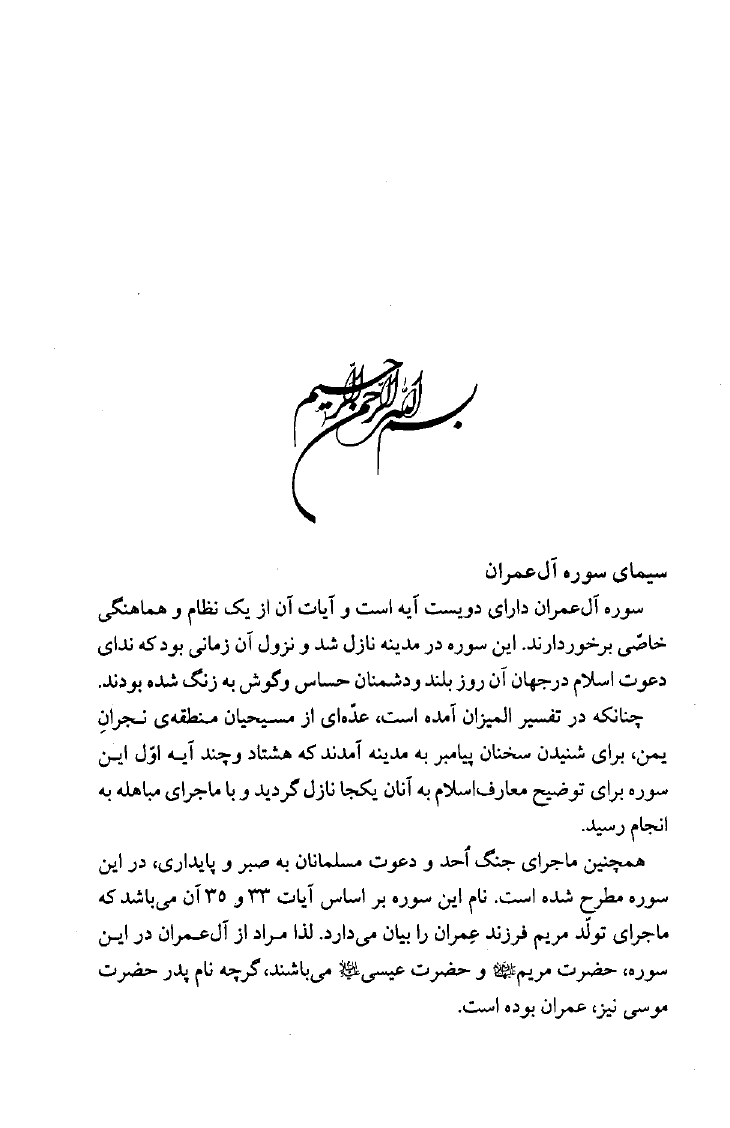 بسم الله الرحمن الرحيم
سیمای سوره آل‌عمران
سوره آل‌عمران دارای دویست آیه است و آیات آن از یک نظام و هماهنگی
خاصّی برخوردارند. این سوره در مدینه نازل شد و نزول آن زمانی بود که ندای
دعوت اسلام درجهان آن روز بلند ودشمنان حساس وگوش به زنگ شده بودند.
چنانکه در تفسیر المیزان آمده است، عدّه‌ای از مسیحیان منطقه‌ی نجرانِ
یمن، برای شنیدن سخنان پیامبر به مدینه آمدند که هشتاد وچند آیه اوّل این
سوره برای توضیح معارف‌اسلام به آنان یکجا نازل گردید و با ماجرای مباهله به
انجام رسید.
همچنین ماجرای جنگ اُحد و دعوت مسلمانان به صبر و پایداری، در این
سوره مطرح شده است. نام این سوره بر اساس آیات ۳۳ و ۳۵ آن می‌باشد که
ماجرای تولّد مریم فرزند عِمران را بیان می‌دارد. لذا مراد از آل‌عمران در این
سوره، حضرت مریم و حضرت عیسی می‌باشند، گرچه نام پدر حضرت
موسی نیز، عمران بوده است.